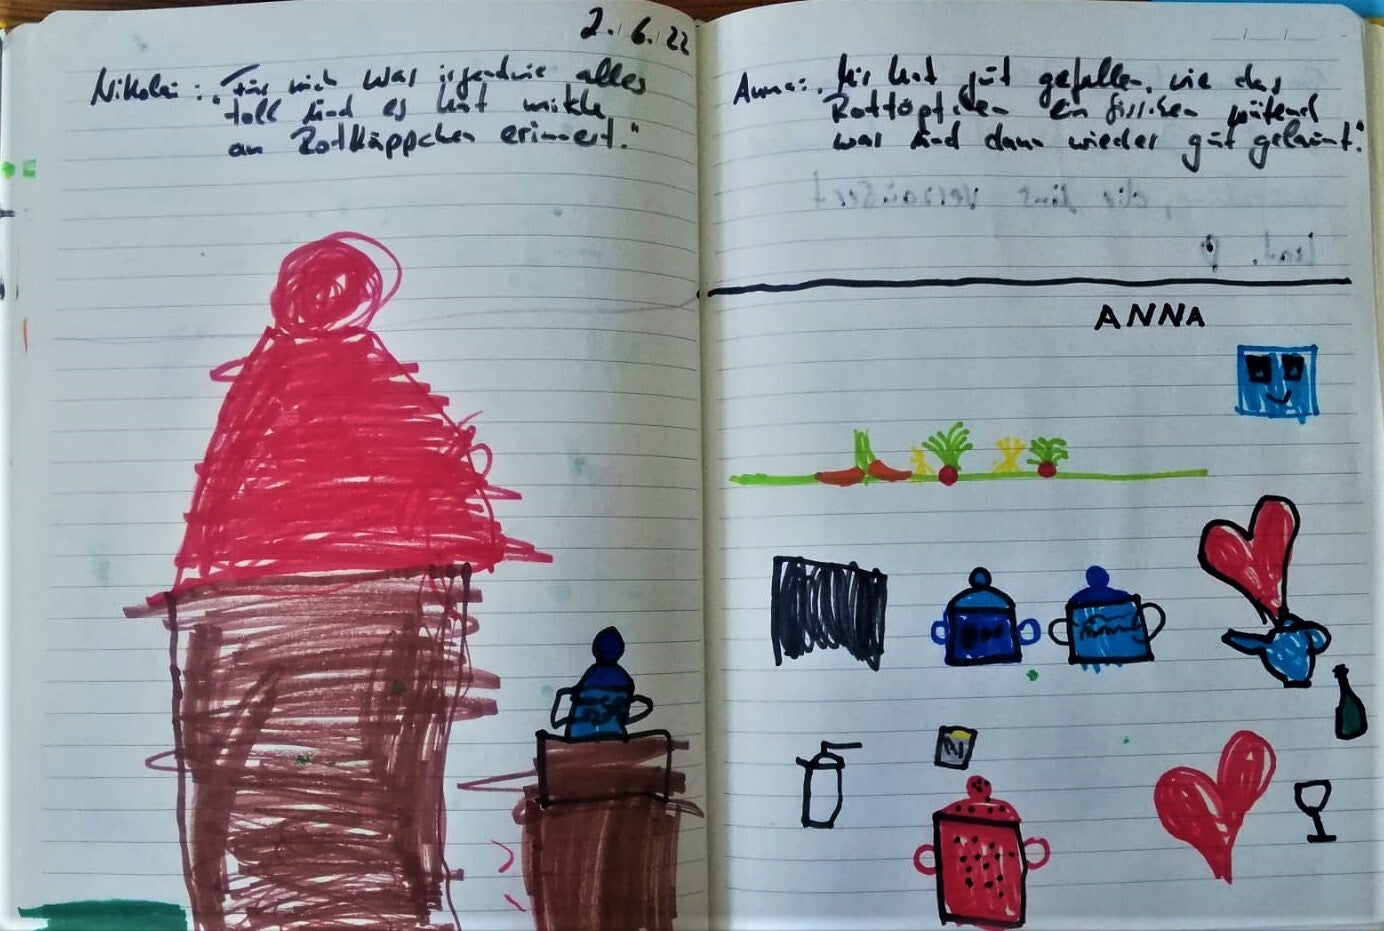 2.6.22
Nikolai: "Für mich war irgendwie alles
toll und es hat mich
an Rotkäppchen erinnert."
Anna: Mir hat gut gefallen, wie das
Rottöpfchen ein bisschen wütend
war und dann wieder gut gelaunt."
ANNA